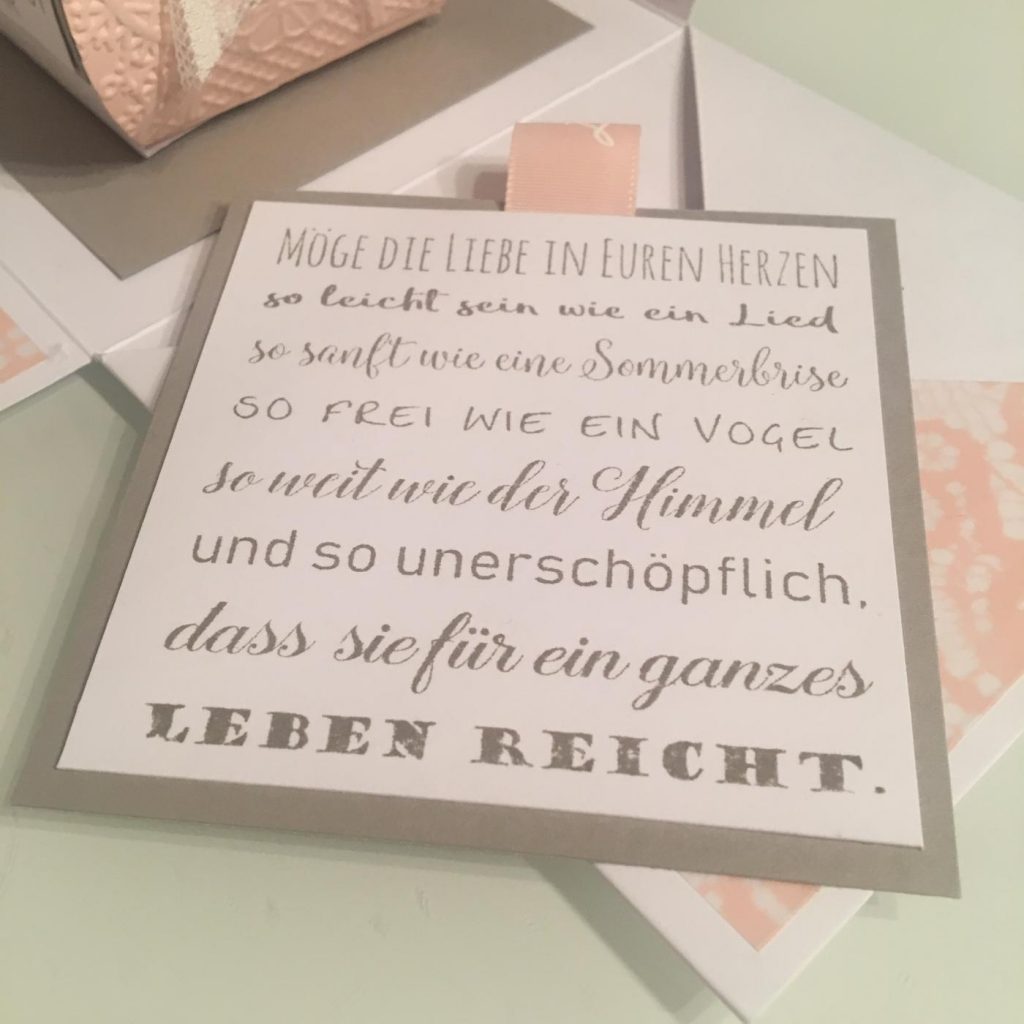 MÖGE DIE LIEBE IN EUREN HERZEN
so leicht sein wie ein Lied
so sanft wie eine Sommerbrise
SO FREI WIE EIN VOGEL
so weit wie der Himmel
und so unerschöpflich,
dass sie für ein ganzes
LEBEN REICHT.